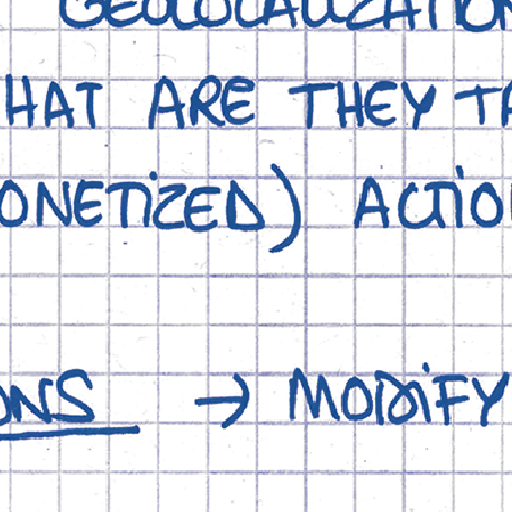 GEOLOCALIZATION
HAT ARE THEY TA
ONETIZED) ACTIO
ONS → MODIFY